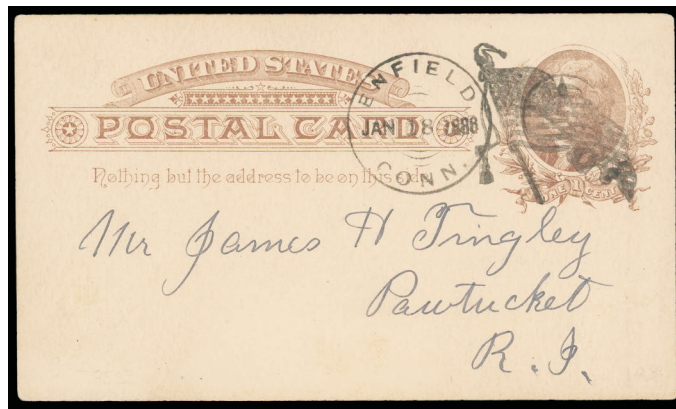 UNITED STATES
POSTAL CARD
Nothing but the address to be on this side.
EWFIELD
JAN 18 1888
CONN.
ONE 1 CENT
Mr James H Tingley
Pawtucket
R. I.